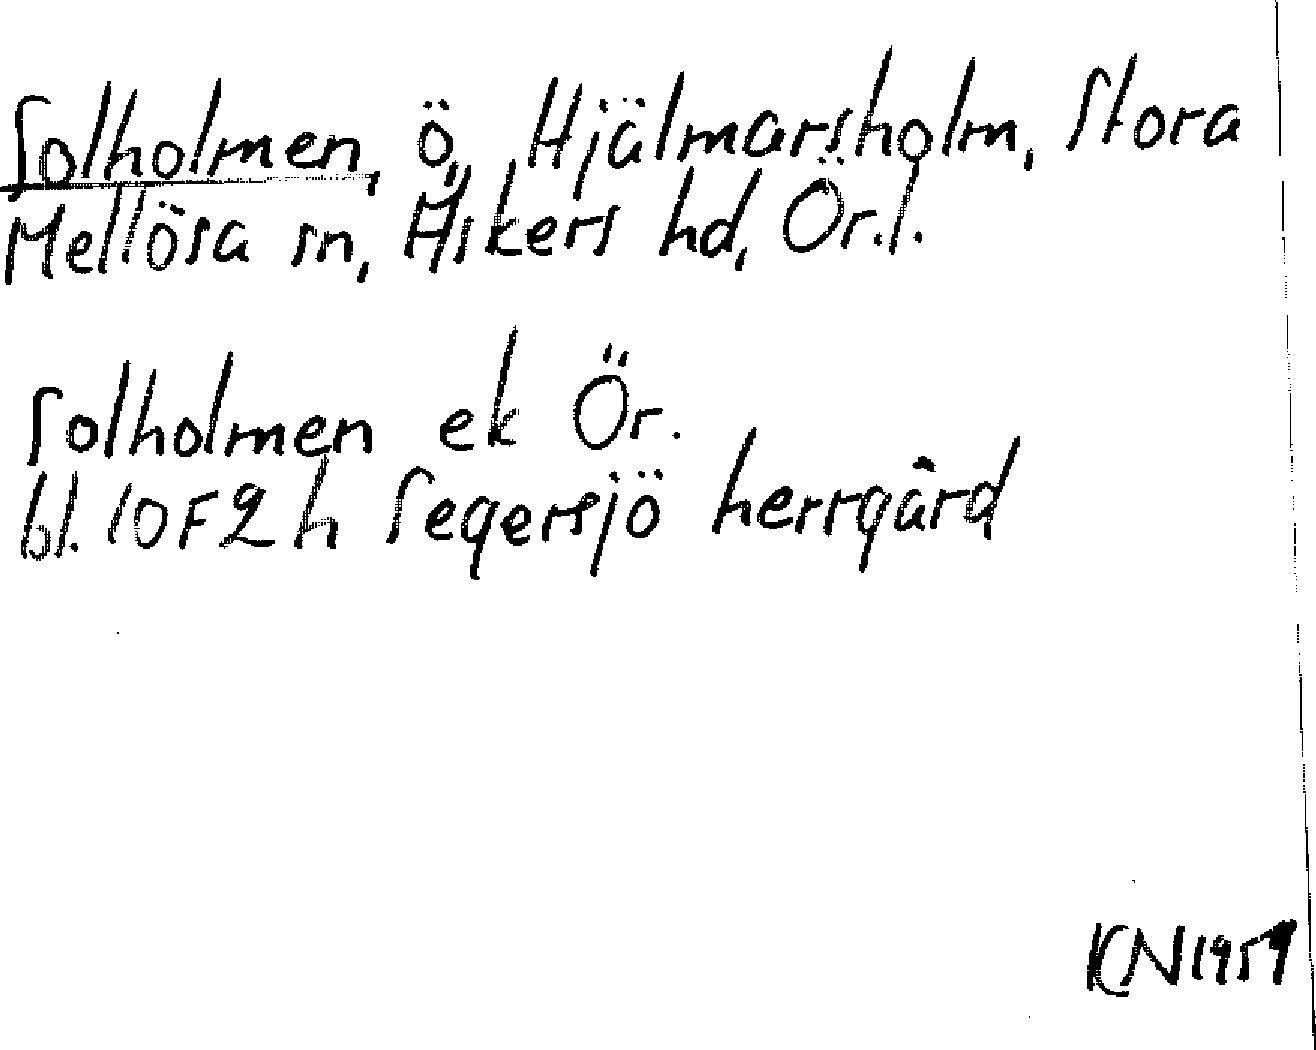 Solholmen, ö, Hjälmarsholm, Stora
Mellösa sn, Askers hd, Ör.l.
Solholmen ek Ör.
bl. 10F2h Segersjö herrgård
KN1959